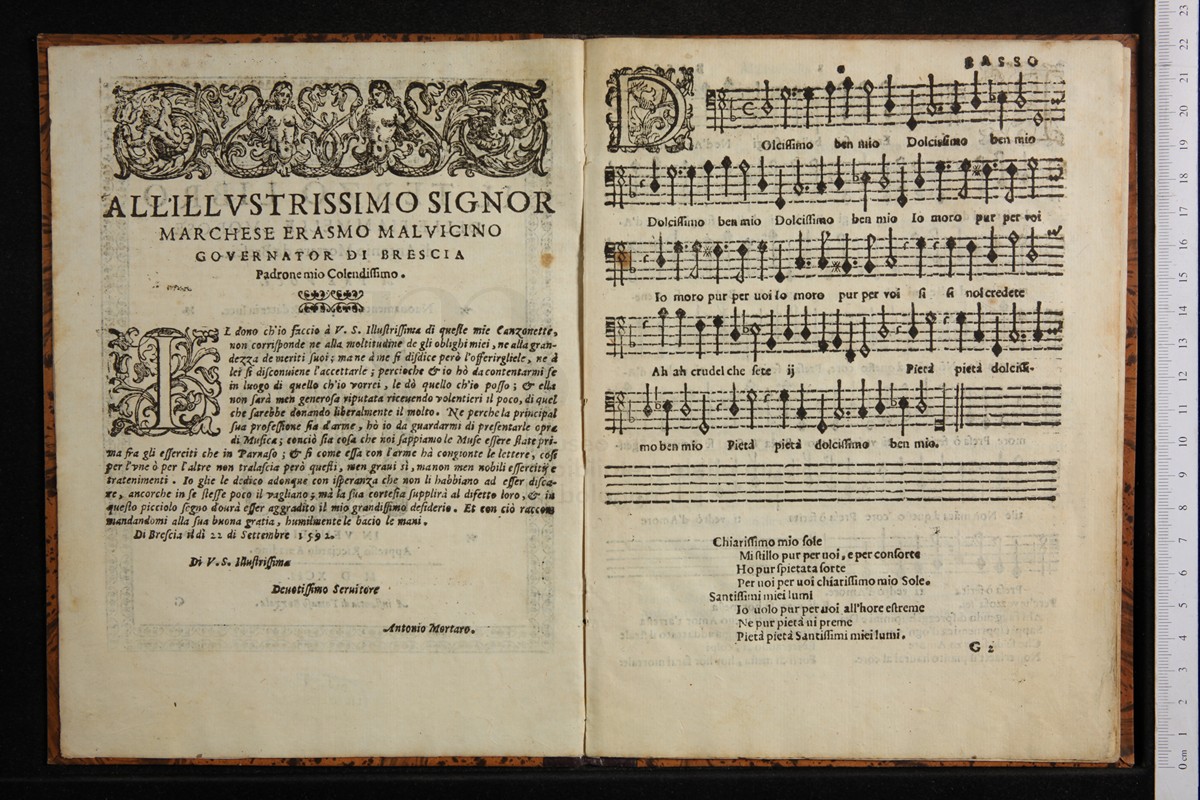 ALL'ILLVSTRISSIMO SIGNOR
MARCHESE ERASMO MALVICINO
GOVERNATOR DI BRESCIA
Padrone mio Colendiſſimo.
IL dono ch'io faccio à V. S. Illuſtriſſima di queſte mie Canzonette,
non corriſponde ne alla moltitudine de gli oblighi miei, ne alla gran-
dezza de meriti ſuoi; ma ne à me ſi diſdice però l'offerirgliele, ne à
lei ſi diſconuiene l'accettarle; percioche & io hò da contentarmi ſe
in luogo di quello ch'io vorrei, le dò quello ch'io poſſo; & ella
non ſarà men generoſa riputata riceuendo volentieri il poco, di quel
che ſarebbe donando liberalmente il molto. Ne perche la principal
ſua profeſſione ſia d'arme, hò io da guardarmi di preſentarle opra
di Muſica; conciò ſia coſa che noi ſappiamo le Muſe eſſere ſtate pri-
ma fra gli eſſerciti che in Parnaſo; & ſi come eſſa con l'arme hà congionte le lettere, coſi
per l'vne ò per l'altre non tralaſcia però queſti, men graui sì, ma non men nobili eſſercitij e
tratenimenti. Io glie le dedico adonque con iſperanza che non li habbiano ad eſſer diſca-
re, ancorche in ſe ſteſſe poco il vagliano; mà la ſua corteſia ſupplirà al difetto loro, & in
queſto picciolo ſegno dourà eſſer aggradito il mio grandiſſimo deſiderio. Et con ciò raccom
mandandomi alla ſua buona gratia, humilmente le bacio le mani.
Di Breſcia il dì 22 di Settembre 1592.
Di V. S. Illuſtriſſima
Deuotiſſimo Seruitore
Antonio Mortaro.
BASSO
DOlciſſimo ben mio Dolciſſimo ben mio
Dolciſſimo ben mio Dolciſſimo ben mio Io moro pur per voi
Io moro pur per uoi Io moro pur per voi ſi ſi nol credete
Ah ah crudel che ſete ij Pietà pietà dolciſſi-
mo ben mio Pietà pietà dolciſſimo ben mio.
Chiariſſimo mio ſole
Mi ſtillo pur per uoi, e per conſorte
Ho pur ſpietata ſorte
Per uoi per uoi chiariſſimo mio Sole.
Santiſſimi miei lumi
Io uolo pur per uoi all'hore eſtreme
Ne pur pietà ui preme
Pietà pietà Santiſſimi miei lumi.
G 2
0 cm 1 2 3 4 5 6 7 8 9 10 11 12 13 14 15 16 17 18 19 20 21 22 23